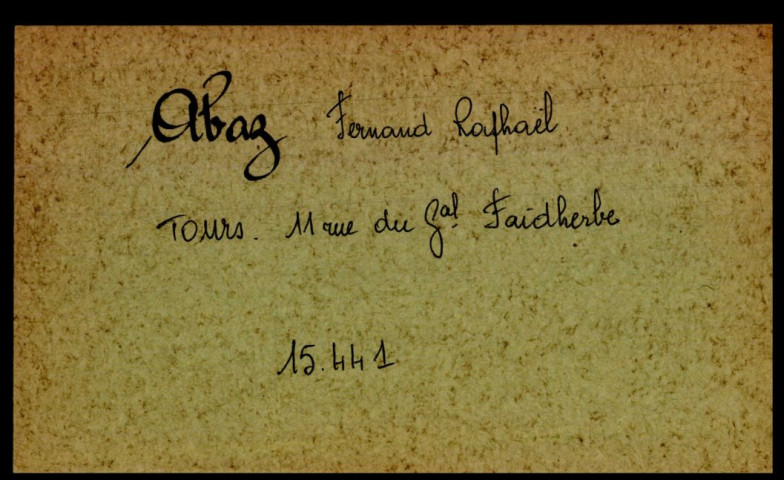 Abaz Fernand Raphaël
TOURS. 11 rue du Gal. Faidherbe
15.441